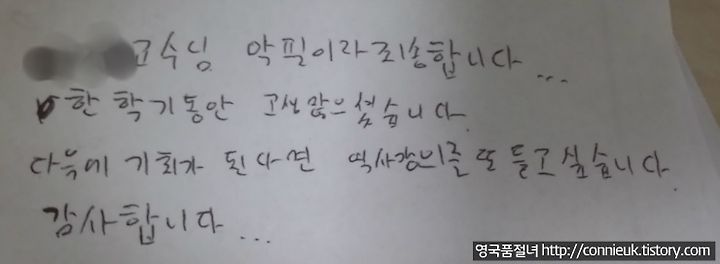 교수님 악필이라 죄송합니다...
한 학기동안 고생많으셨습니다.
다음에 기회가 된다면 역사강의를 또 듣고싶습니다.
감사합니다...
영국품절녀 http://connieuk.tistory.com